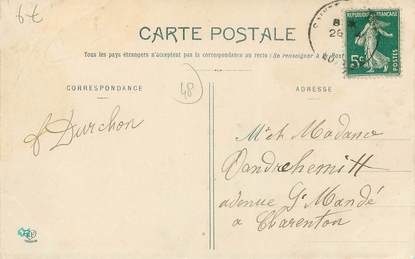 6€
CARTE POSTALE
Tous les pays étrangers n'acceptent pas la correspondance au recto (Se renseigner à la Poste)
RÉPUBLIQUE FRANÇAISE
5c
POSTES
8
26
CORRESPONDANCE
48
ADRESSE
Durchon
Mr et Madame
Dandrehemitt
avenue St Mandé
a Charenton